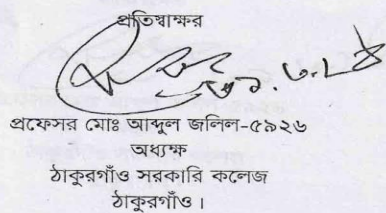 প্রতিস্বাক্ষর
প্রফেসর মোঃ আব্দুল জলিল-৫৯২৬
অধ্যক্ষ
ঠাকুরগাঁও সরকারি কলেজ
ঠাকুরগাঁও।